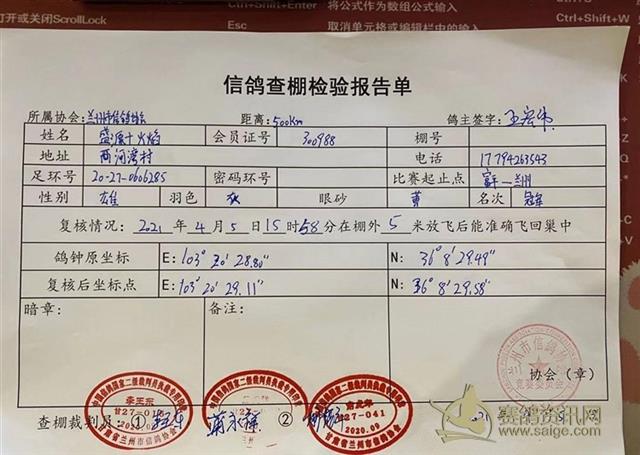 打开或关闭ScrollLock
Ctrl+Shift+Enter
将公式作为数组公式输入
Ctrl+Shift+W
取消单元格或编辑栏中的输入
信鸽查棚检验报告单
所属协会: 兰州市信鸽协会 距离: 500Km 鸽主签字: 王宏伟
姓名 盛源十火焰 会员证号 300988 棚号
地址 两河湾村 电话 17794263543
足环号 20-27-0606285 密码环号 比赛起止点 富平—兰州
性别 雄 羽色 灰 眼砂 黄 名次 冠军
复核情况: 2021年4月5日15时58分在棚外5米放飞后能准确飞回巢中
鸽钟原坐标 E: 103° 20′ 28.80″ N: 36° 8′ 29.49″
复核后坐标点 E: 103° 20′ 29.11″ N: 36° 8′ 29.58″
暗章: 备注:
兰州市信鸽协会
竞赛委员会
协会 (章)
李玉东
甘27-01
2020.09
甘肃省兰州市信鸽协会
27-041
2020.09
甘肃省兰州市信鸽协会
查棚裁判员: ① ②
赛鸽资讯网
www.saige.com